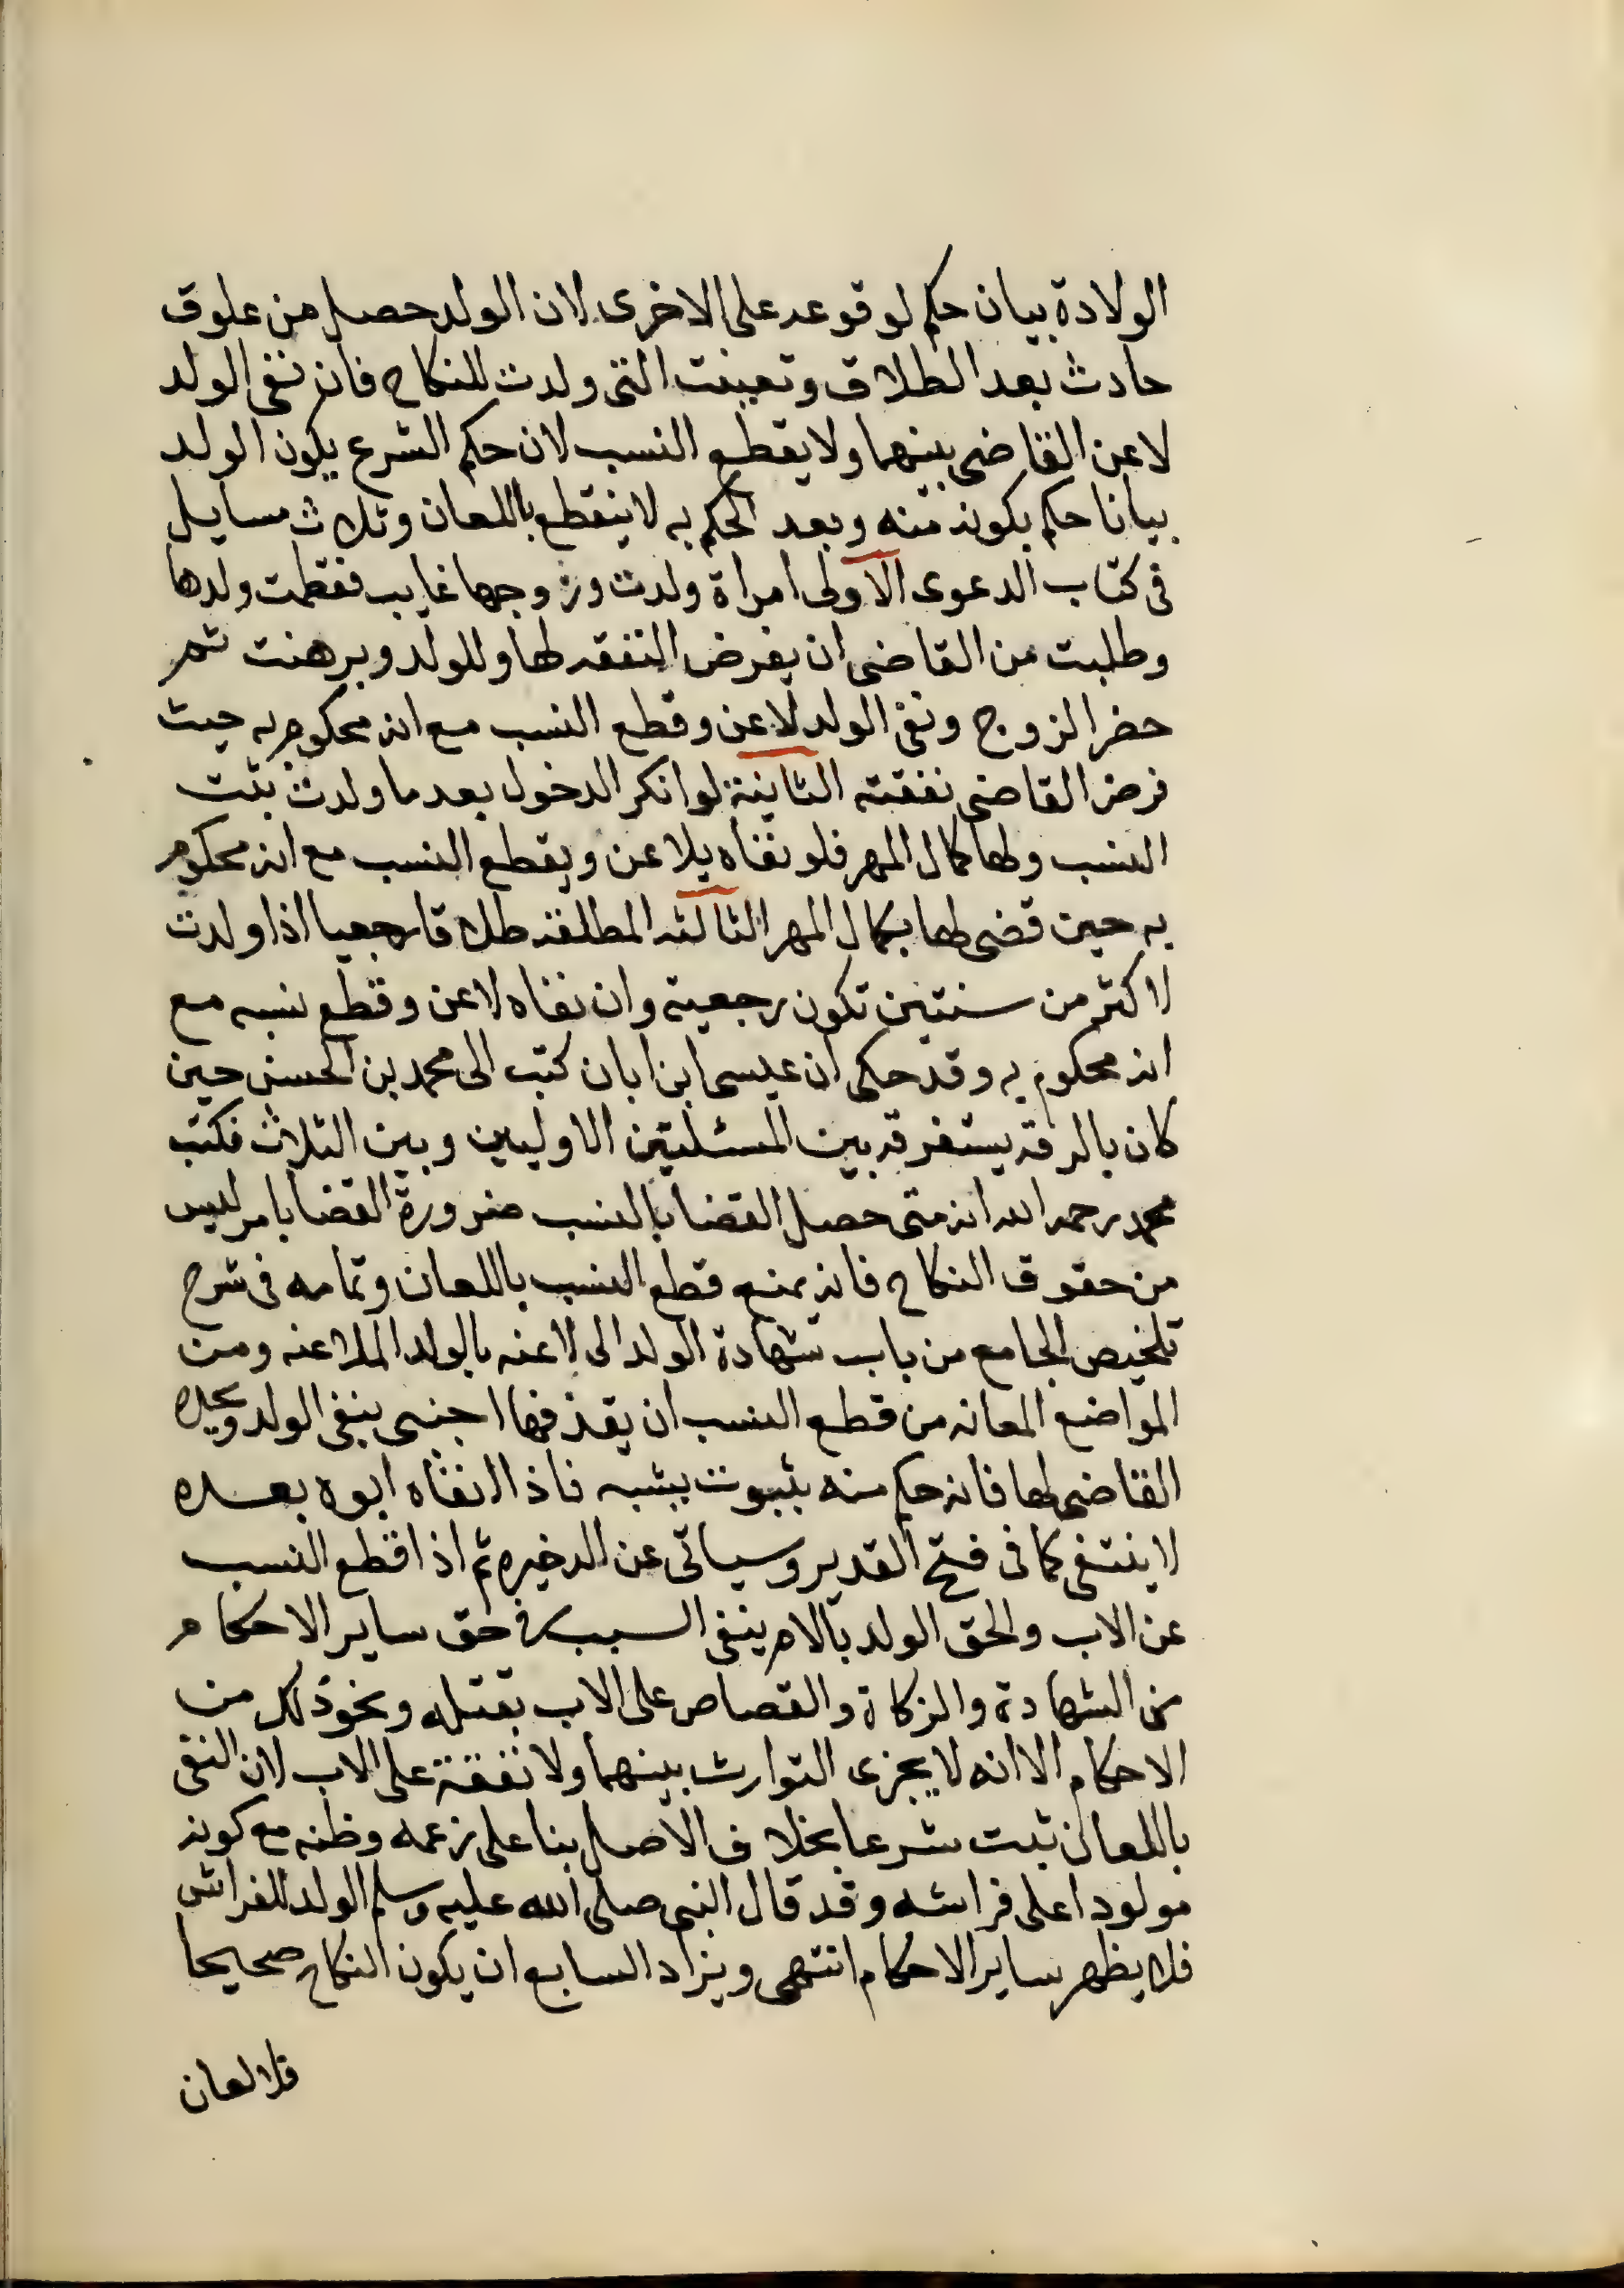 الولادة بيان حكم لوقوعه على الاخرى لان الولد حصل من علوق
حادث بعد الطلاق وتعينت التي ولدت للنكاح فان نفى الولد
لاعن القاضي بينهما ولا يقطع النسب لان حكم الشرع يكون الولد
بيانا حكم بكونه منه وبعد الحكم به لا ينقطع باللعان وثلاث مسايل
في كتاب الدعوى الاولى امراة ولدت وزوجها غايب ففطمت ولدها
وطلبت من القاضي ان يفرض النفقه لها وللولد وبرهنت ثم
حضر الزوج ونفى الولد لاعن وقطع النسب مع انه محكوم به حيث
فرض القاضي نفقته الثانية لو انكر الدخول بعد ما ولدت يثبت
النسب ولها كمال المهر فلو نفاه يلاعن ويقطع النسب مع انه محكوم
به حين قضى لها بكمال المهر الثالثه المطلقه طلاقا رجعيا اذا ولدت
لاكثر من سنتين تكون رجعية وان نفاه لاعن وقطع نسبه مع
انه محكوم به وقد حكى ان عيسى ابن ابان كتب الى محمد بن الحسن حين
كان بالرقه يستفرقه بين المسئلتين الاوليين وبين الثلاث فكتب
محمد رحمه الله انه متى حصل القضا بالنسب ضرورة القضا بامر ليس
من حقوق النكاح فانه يمنع قطع النسب باللعان وتمامه في شرح
تلخيص الجامع من باب شهادة الولد الى لاعنه بالولد الملاعنه ومن
المواضع المعانه من قطع النسب ان يقذفها اجنبي بنفي الولد ويحده
القاضي لها فانه حكم منه بثبوت بنسبه فاذا انفاه ابوه بعده
لا ينتفي كما في فتح القدير وسياتي عن الدخيره ثم اذا قطع النسب
عن الاب والحق الولد بالام ينفى السبب في حق ساير الاحكام
من الشهادة والزكاة والقصاص على الاب بقتله ونحو ذلك من
الاحكام الا انه لا يجزى التوارث بينهما ولا نفقة على الاب لان النفى
باللعان ثبت شرعا بخلاف الاصل بنا على زعمه وظنه مع كونه
مولودا على فراشه وقد قال النبي صلى الله عليه وسلم الولد للفراش
فلا يظهر ساير الاحكام انتهى ويزاد السابع ان يكون النكاح صحيحا
فلا لعان